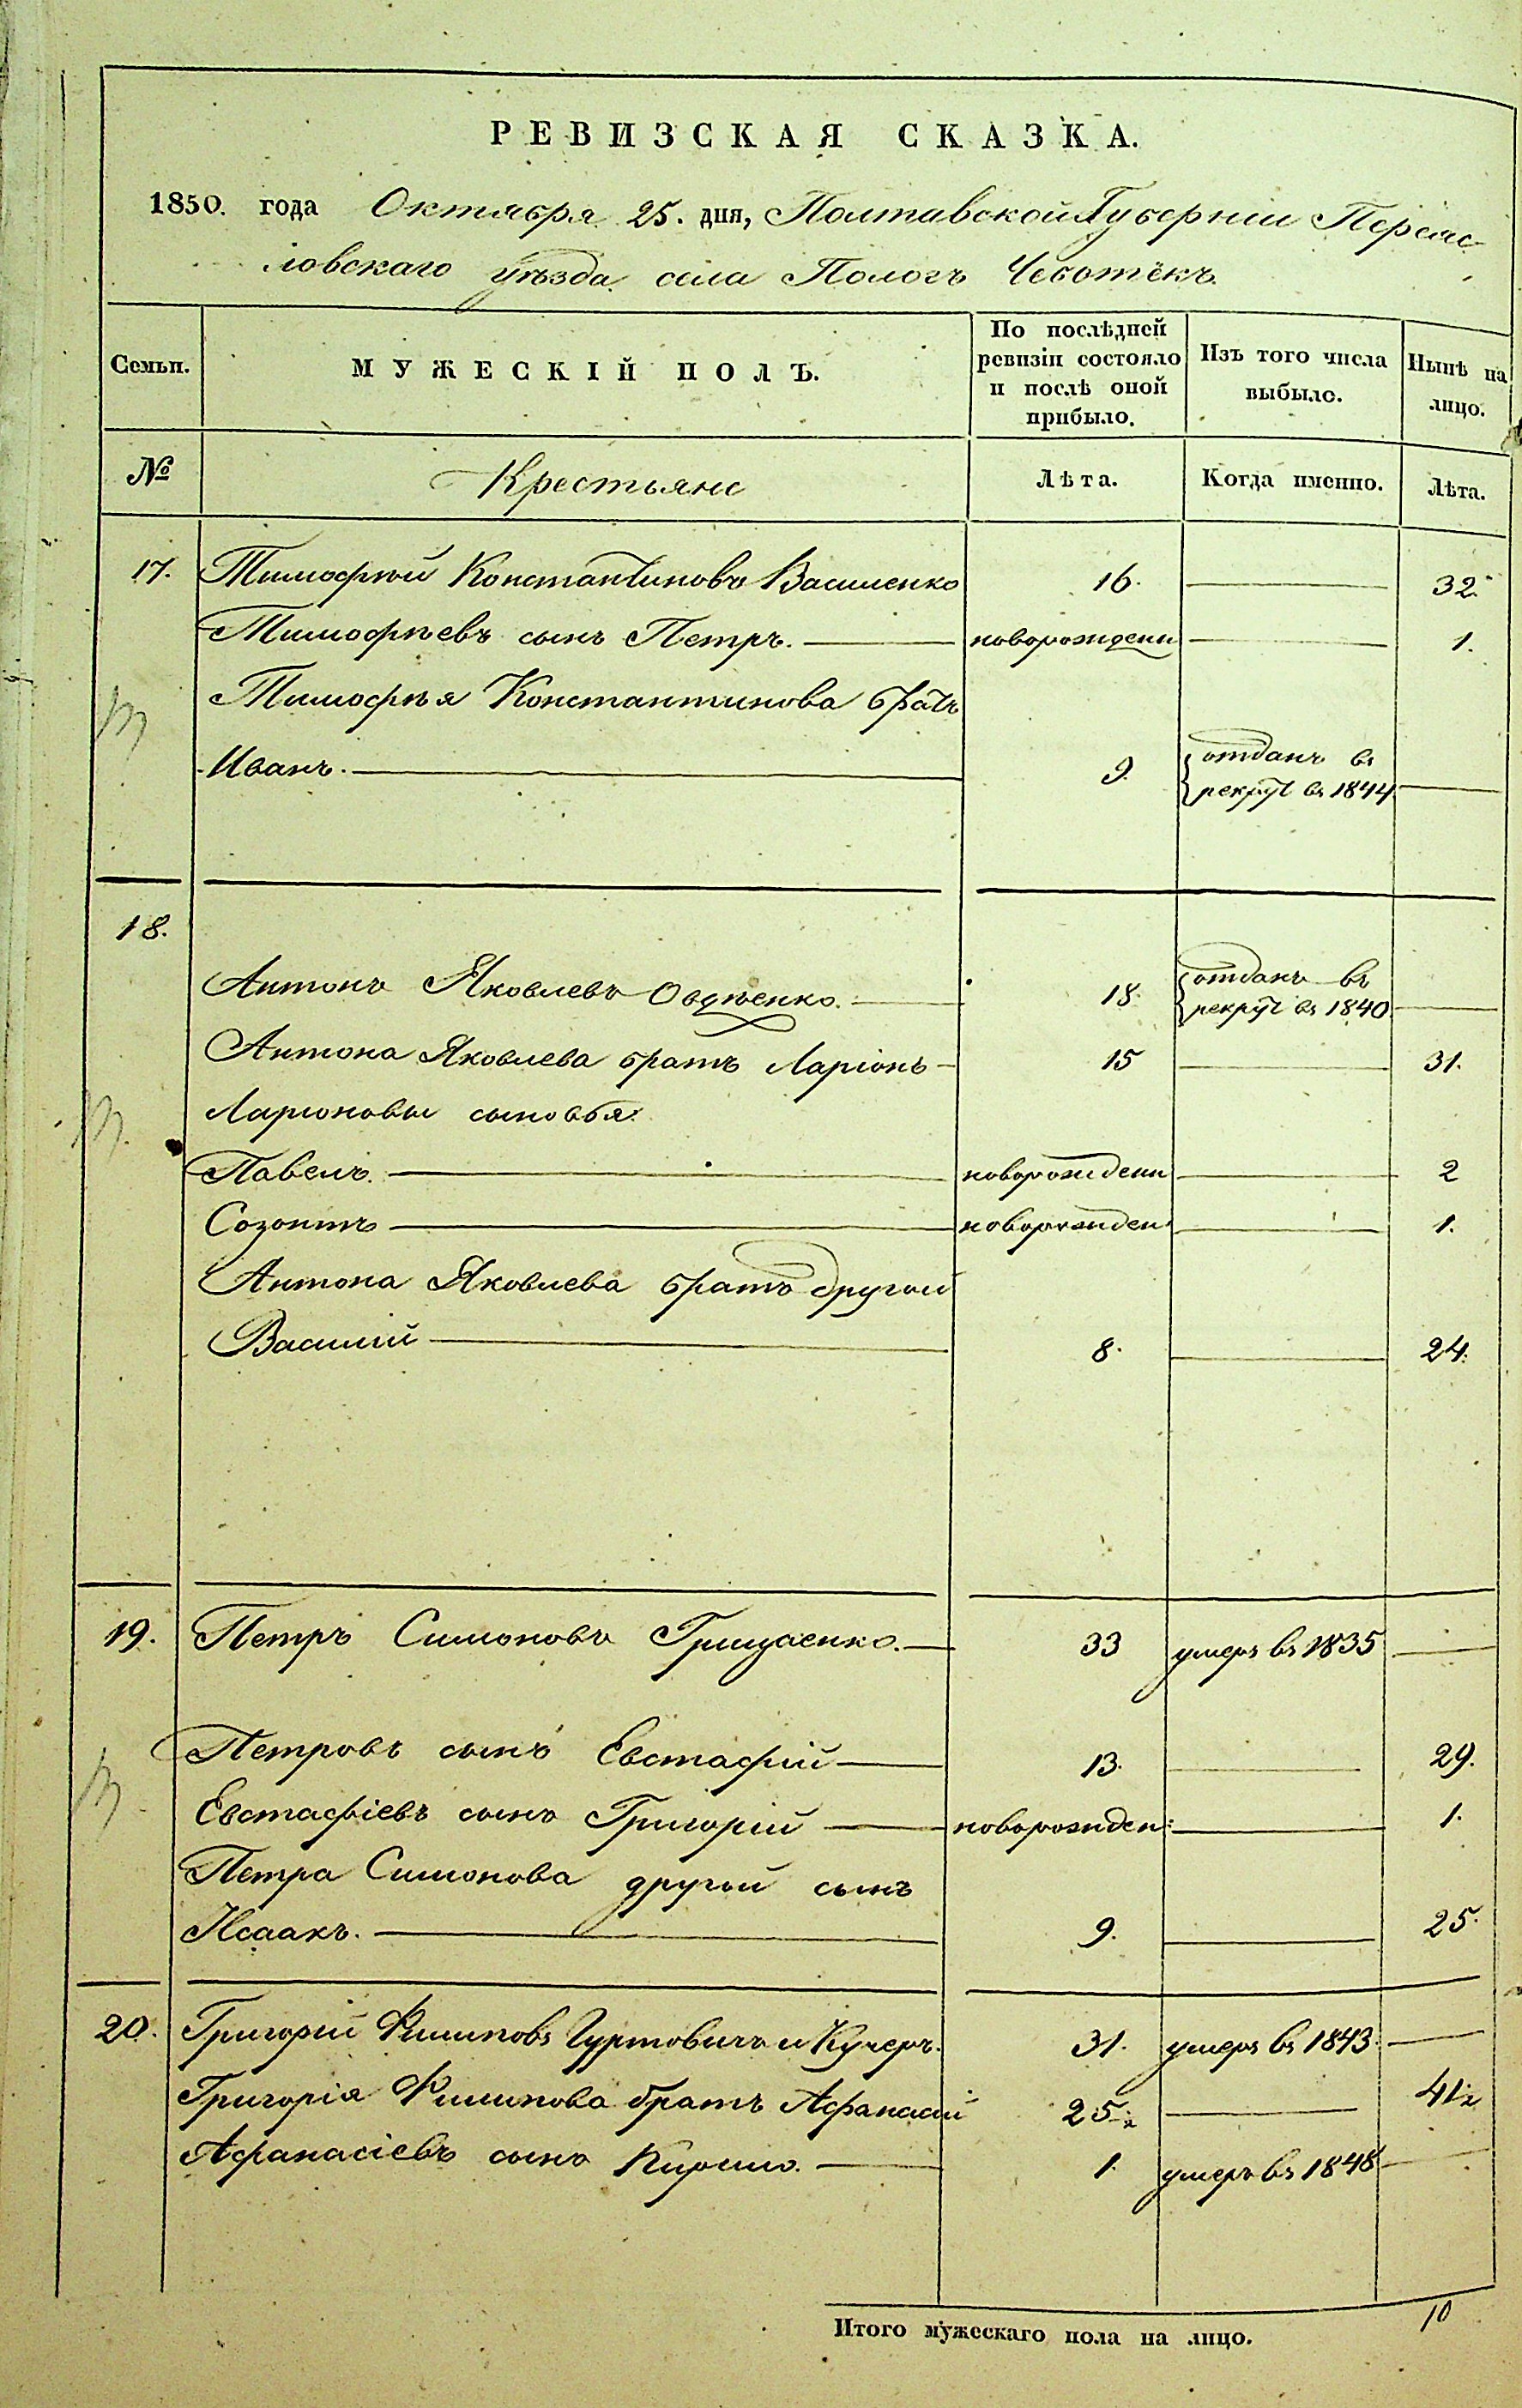 РЕВИЗСКАЯ СКАЗКА.
1850. года Октября 25. дня, Полтавской Губерніи Переяс-
ловскаго уѣзда села Пологъ Чеботёкъ.
Семьи. МУЖЕСКІЙ ПОЛЪ. По послѣдней ревизіи состояло и послѣ оной прибыло. Изъ того числа выбыло. Нынѣ на лицо.
№ Крестьяне Лѣта. Когда именно. Лѣта.
17. Тимофѣй Константиновъ Василенко 16. 32.
Тимофѣевъ сынъ Петръ. новорожденн 1.
Тимофѣя Константинова братъ
Иванъ. 9. отданъ въ рекрут въ 1844
18.
Антонъ Яковлевъ Овдѣенко. 18. отданъ въ рекрут въ 1840
Антона Яковлева братъ Ларіонъ 15 31.
Ларионовы сыновья.
Павелъ. новорожденн 2
Созонтъ новорожден: 1.
Антона Яковлева братъ другой
Василій 8. 24.
19. Петръ Симоновъ Грицаенко. 33 умеръ въ 1835
Петровъ сынъ Евстафій 13. 29.
Евстафіевъ сынъ Григорій новорожден: 1.
Петра Симонова другой сынъ
Исаакъ. 9. 25.
20. Григорій Филиповъ Гуртовичъ и Кучеръ. 31. умеръ въ 1843.
Григорія Филипова братъ Афанасій 25½ 41½
Афанасіевъ сынъ Кирило. 1. умеръ въ 1848
Итого мужескаго пола на лицо. 10